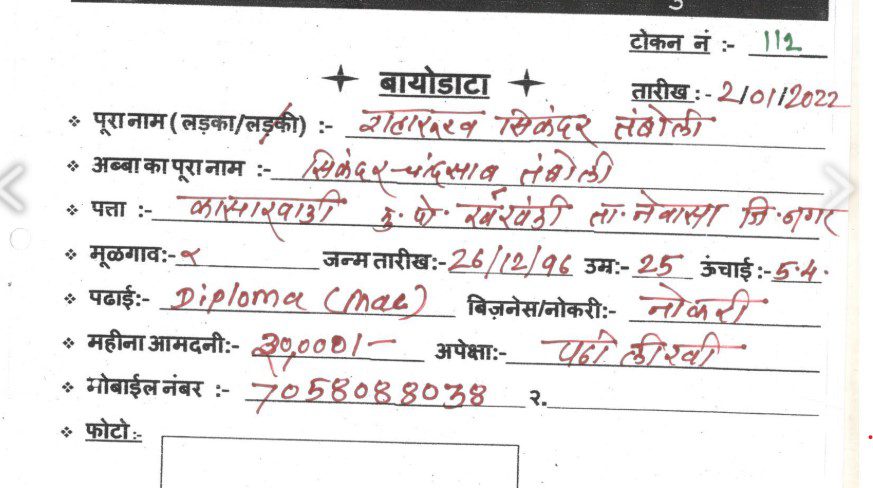 टोकन नं :- 112
बायोडाटा
तारीख :- 2/01/2022
पूरा नाम (लड़का/लड़की) :- शाहरुख सिकंदर तंबोली
अब्बा का पूरा नाम :- सिकंदर चांदसाब तंबोली
पत्ता :- कासारवाडी मु. पो. खरवंडी ता. नेवासा जि. नगर
मूळगाव:- जन्म तारीख:- 26/12/96 उम्र:- 25 ऊंचाई :- 5.4.
पढाई:- Diploma बिज़नेस/नोकरी:- नोकरी
महीना आमदनी:- अपेक्षा:- पढी लीखी
मोबाईल नंबर :- 7058088038 २.
फोटो :-